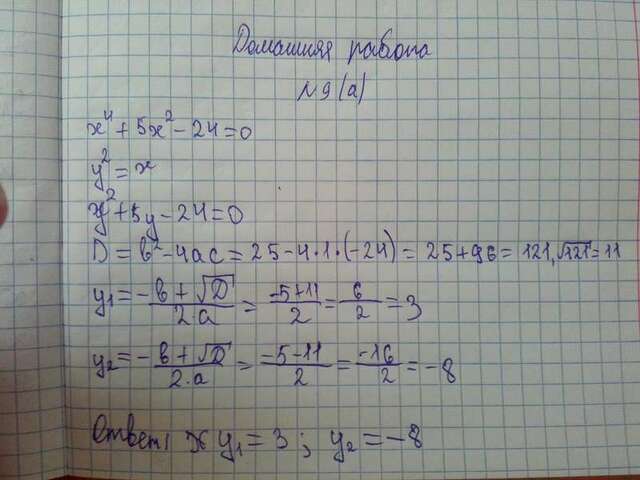 Домашняя работа
№9(а)
x⁴ + 5x² - 24 = 0
y² = x
y² + 5y - 24 = 0
D = b² - 4ac = 25 - 4·1·(-24) = 25 + 96 = 121, √121 = 11
y₁ = -b + √D / 2·a = -5+11 / 2 = 6 / 2 = 3
y₂ = -b + √D / 2·a = -5-11 / 2 = -16 / 2 = -8
Ответ: y₁ = 3 ; y₂ = -8